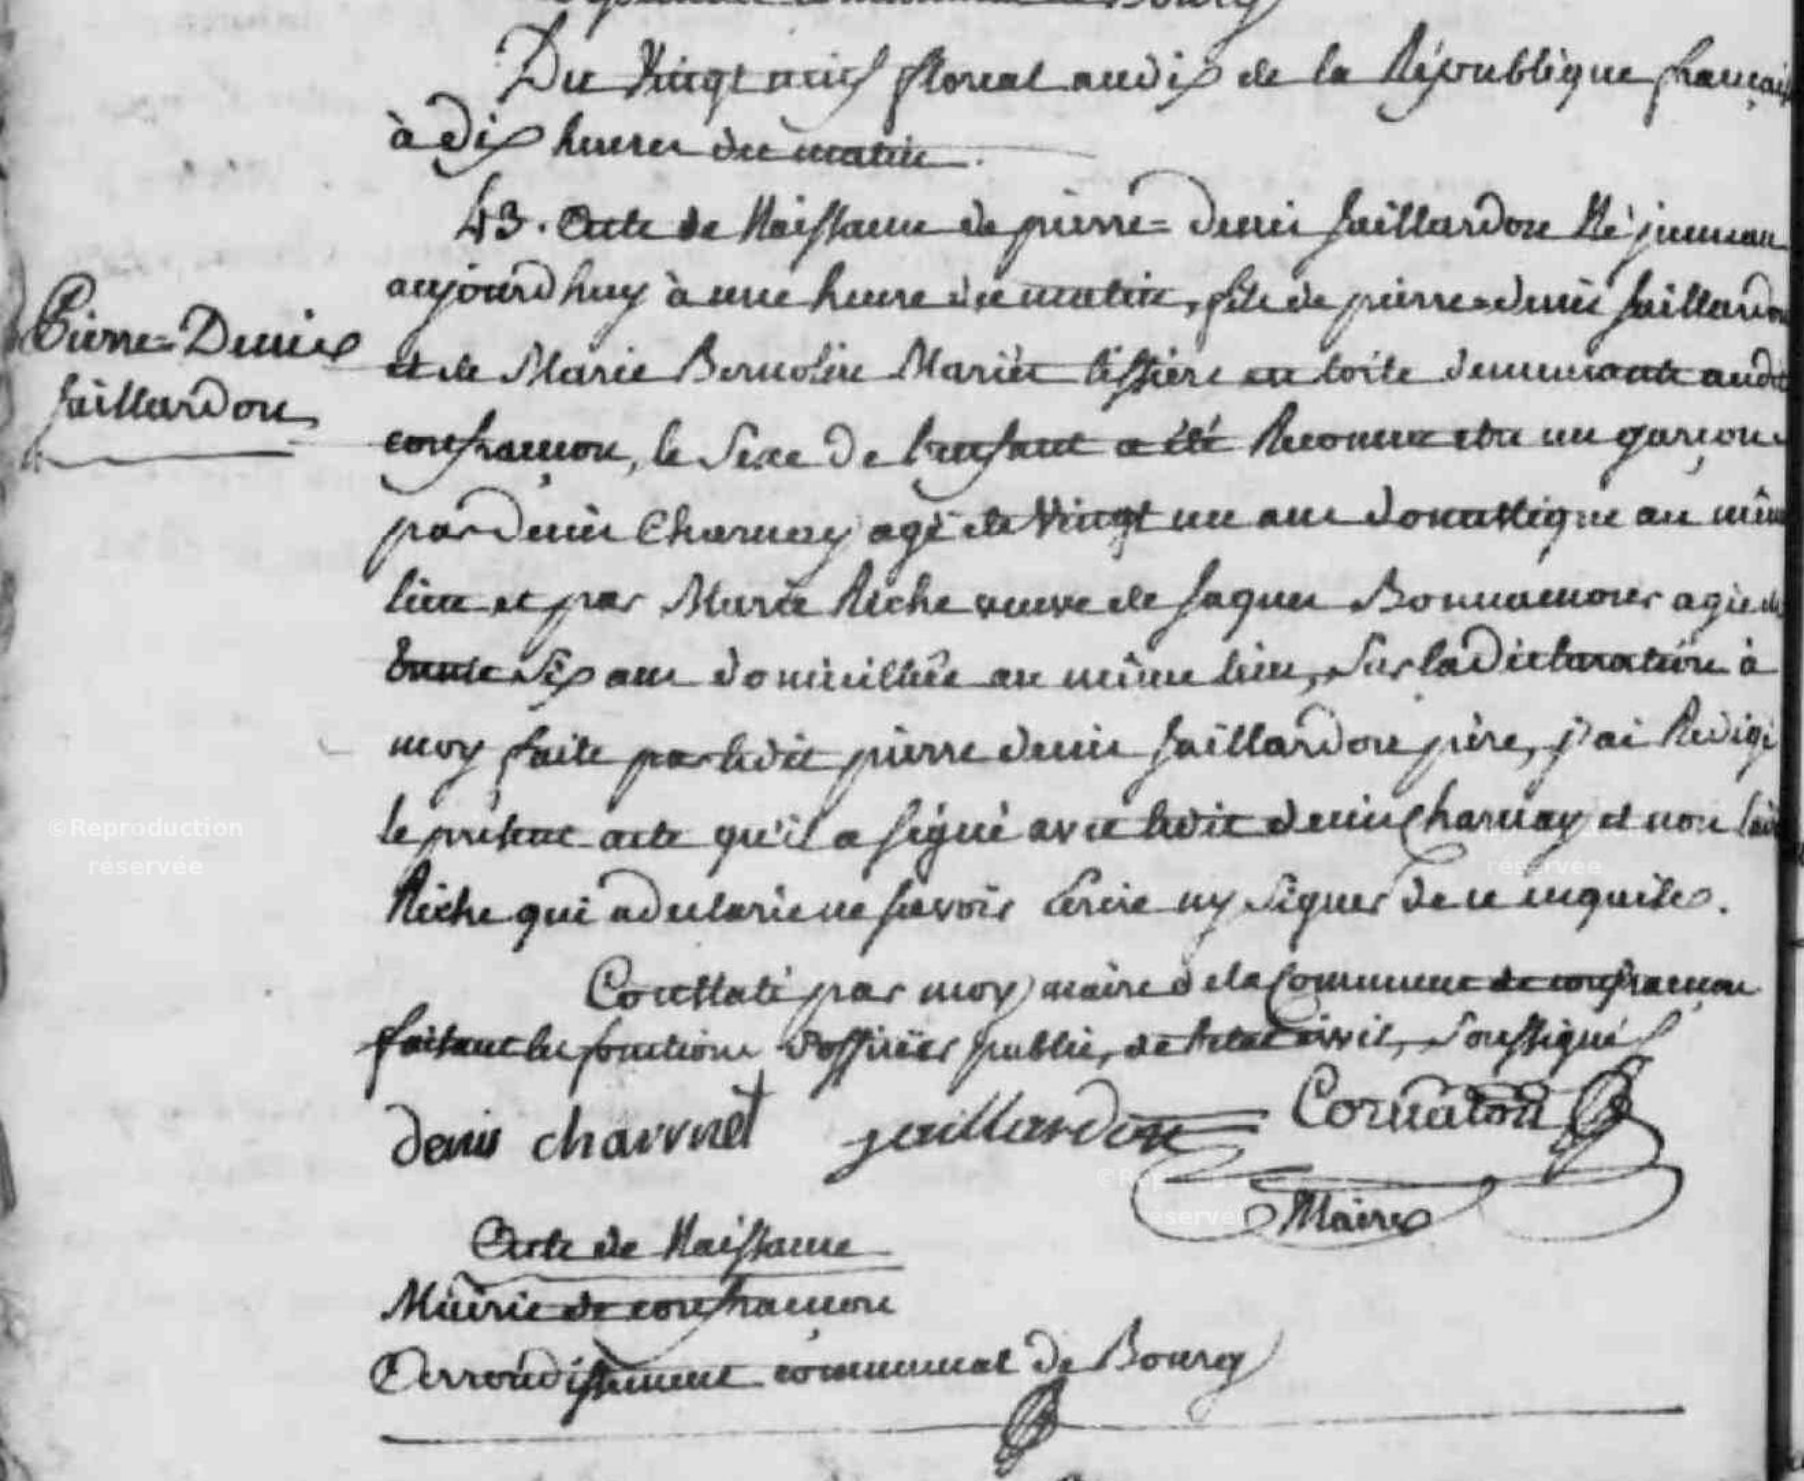 Du Vingt neuf floreal an dix de la République françai
à dix heures du matin.
43. Acte de Naissance de pierre=denis Jaillardon Né jumeau
aujourd huy à une heure du matin, fils de pierre=denis Jaillardon
Pierre=Denis
Jaillardon
et de Marie Bernolin Mariés tissiers en toile demeurants audit
confrançon, le Sexe de l'enfant a été Reconnu etre un garçon
par denis Charnay agé de Vingt un ans domestique au même
lieu et par Marie Riche veuve de Jaques Bonnamour agée de
trente Six ans domiciliée au même lieu, Sur la déclaration à
moy faite par ledit pierre denis Jaillardon père, j'ai Rédigé
le présent acte qu'il a signé avec ledit denis Charnay et non ladi
Riche qui a declaré ne savoir Ecrire ny Signer de ce enquise.
Constaté par moy maire de la Commune de confrançon
faisant les fonctions d'officier public, de l'etat civil, Soussigné
denis charvnet jaillardon Cornaton
Maire
Acte de Naissance
Mairie de confrançon
Arrondissement communal de Bourg
©Reproduction
réservée
réservée